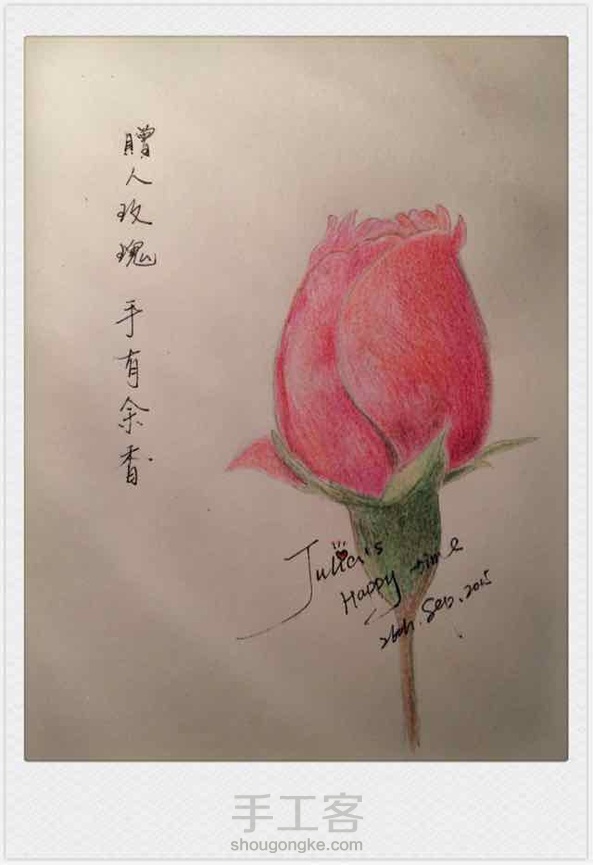 贈人玫瑰 手有余香
Julia's
Happy time
26th. Sep. 2015
手工客
shougongke.com